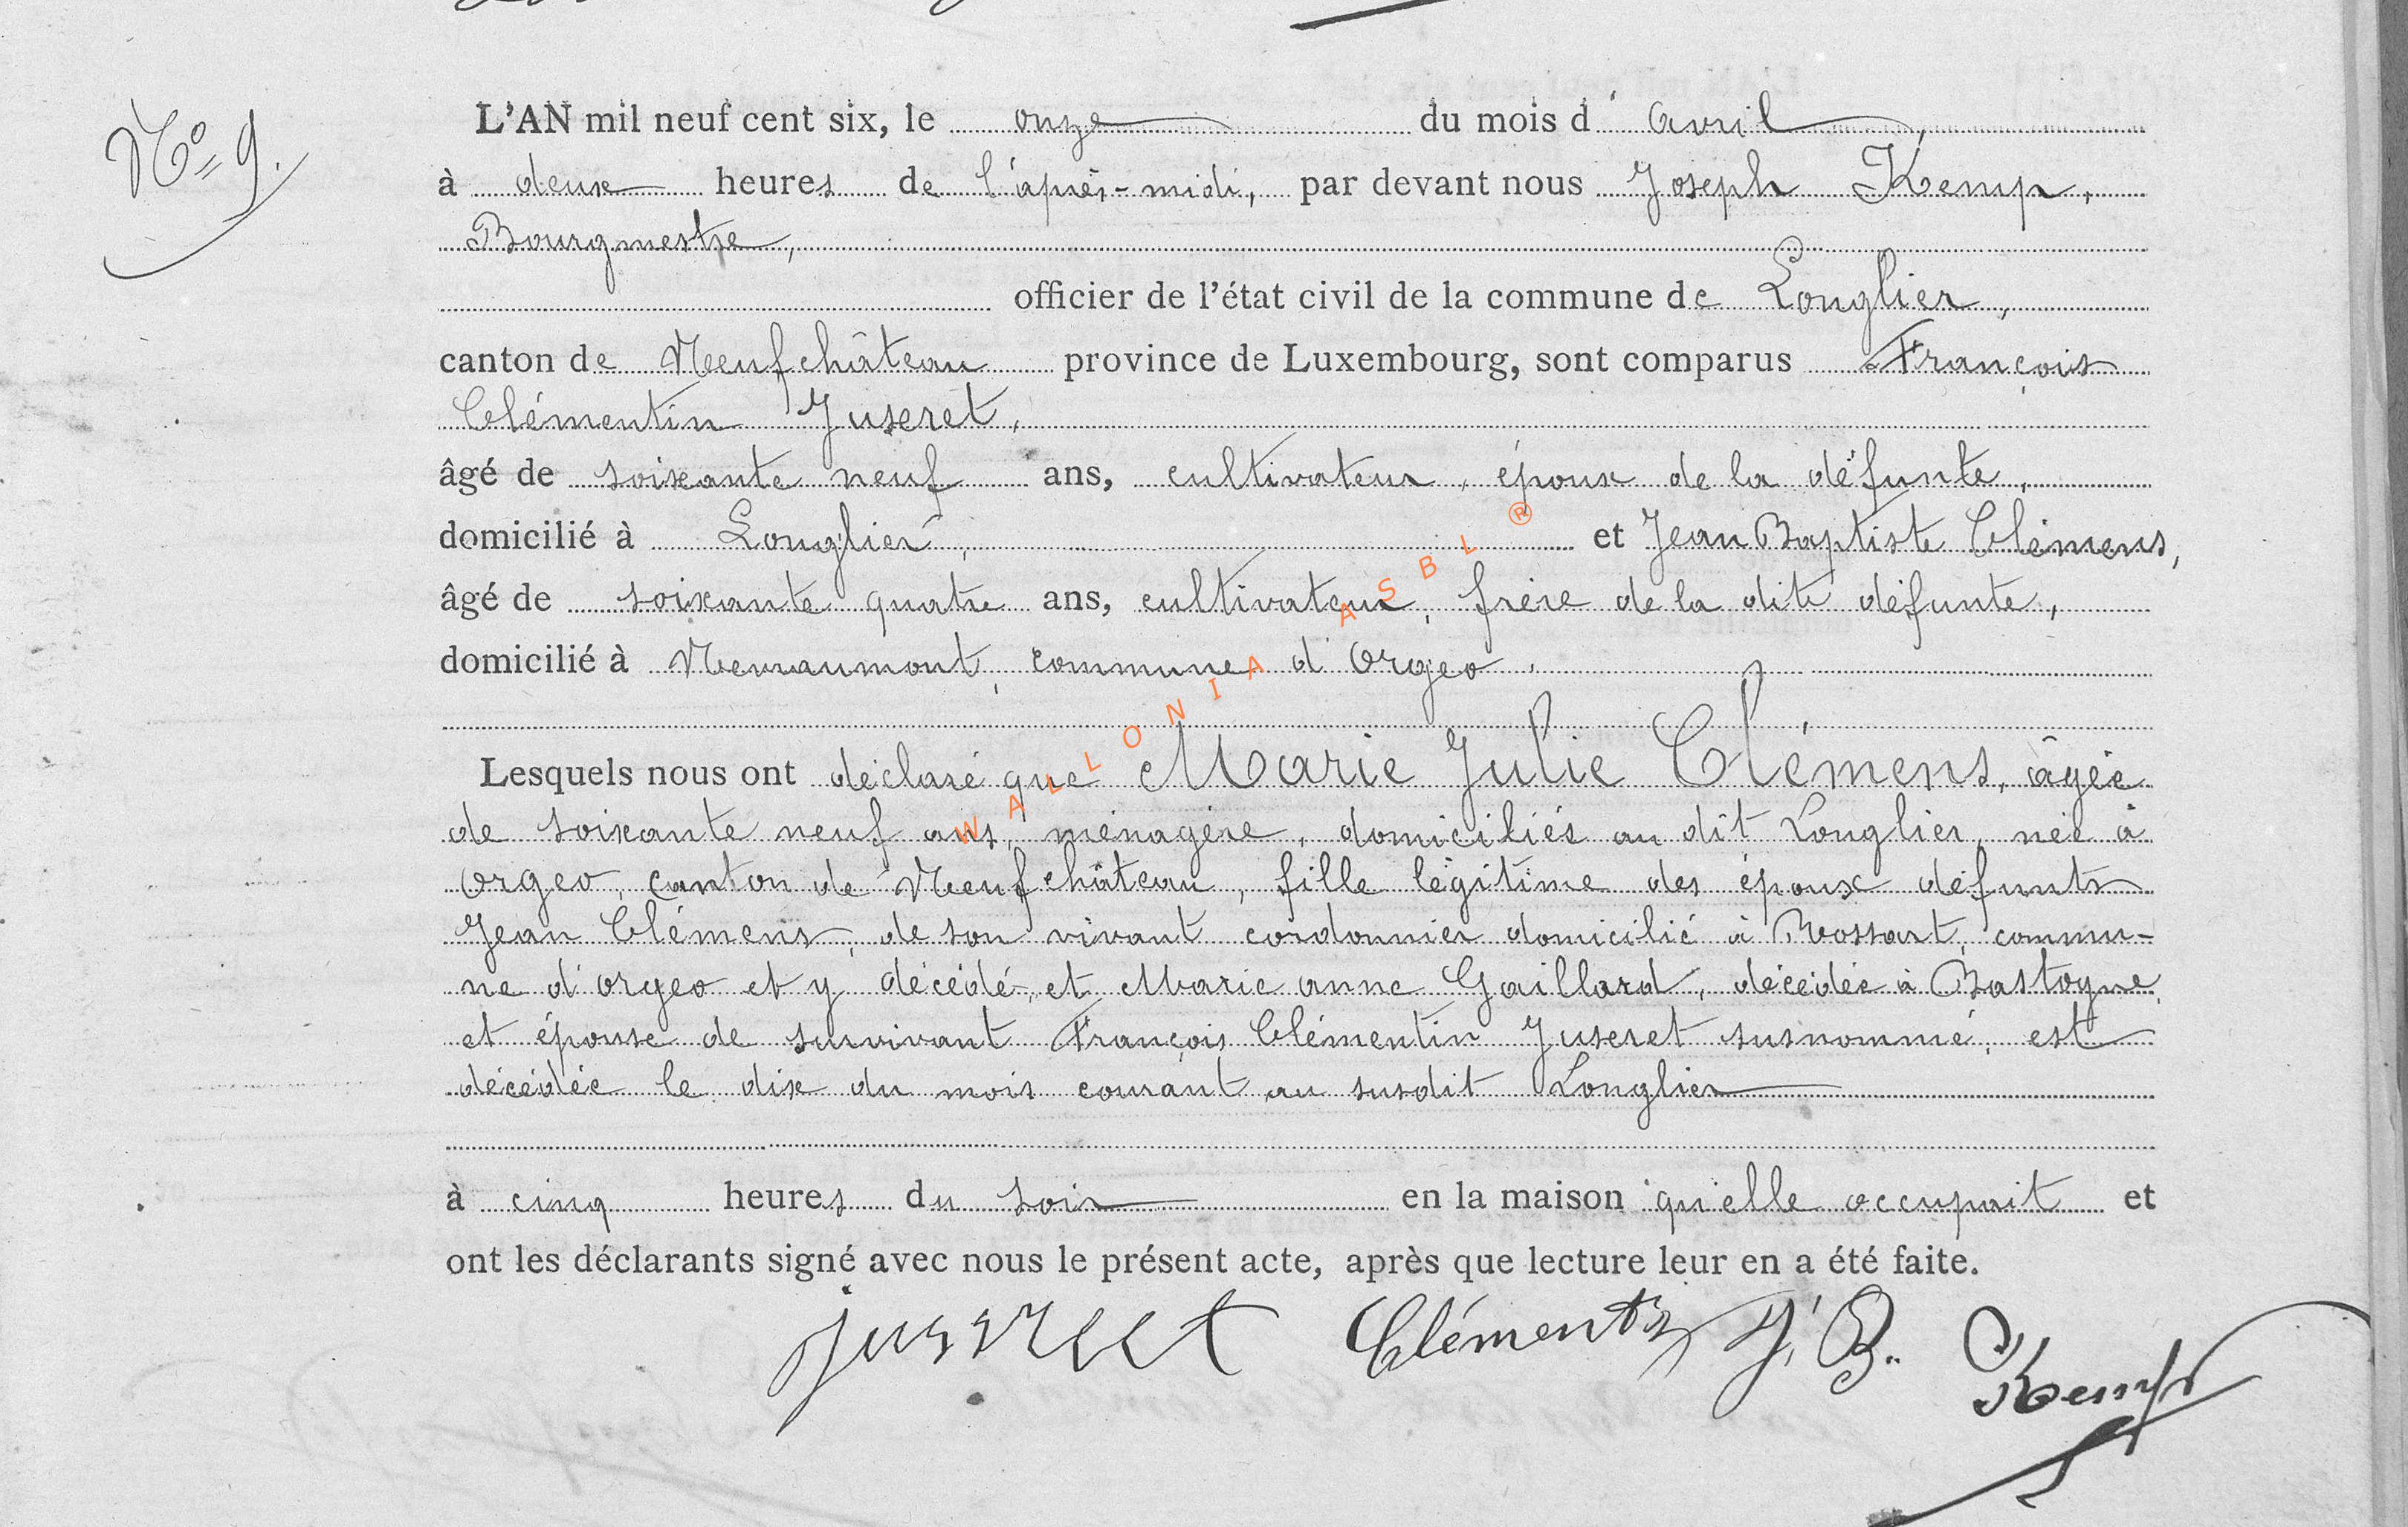 N° 9.
L'AN mil neuf cent six, le onze du mois d'avril,
à deux heures de l'après-midi, par devant nous Joseph Kemp,
Bourgmestre,
officier de l'état civil de la commune de Longlier,
canton de Neufchâteau province de Luxembourg, sont comparus François
Clémentin Juseret,
âgé de soixante neuf ans, cultivateur, époux de la défunte,
domicilié à Longlier, et Jean Baptiste Clémens,
âgé de soixante quatre ans, cultivateur, frère de la dite défunte,
domicilié à Nevraumont, commune d'Orgeo.
Lesquels nous ont déclaré que Marie Julie Clémens, âgée
de soixante neuf ans, ménagère, domiciliée au dit Longlier, née à
Orgeo, canton de Neufchâteau, fille légitime des époux défunts
Jean Clémens, de son vivant cordonnier domicilié à Rossart, commu-
ne d'Orgeo et y décédé, et Marie Anne Gaillard, décédée à Bastogne,
et épouse de survivant François Clémentin Juseret susnommé, est
décédée le dix du mois courant au susdit Longlier
à cinq heures du soir en la maison qu'elle occupait et
ont les déclarants signé avec nous le présent acte, après que lecture leur en a été faite.
Juseret Clément J. B. Kemp
WALLONIA ASBL ®